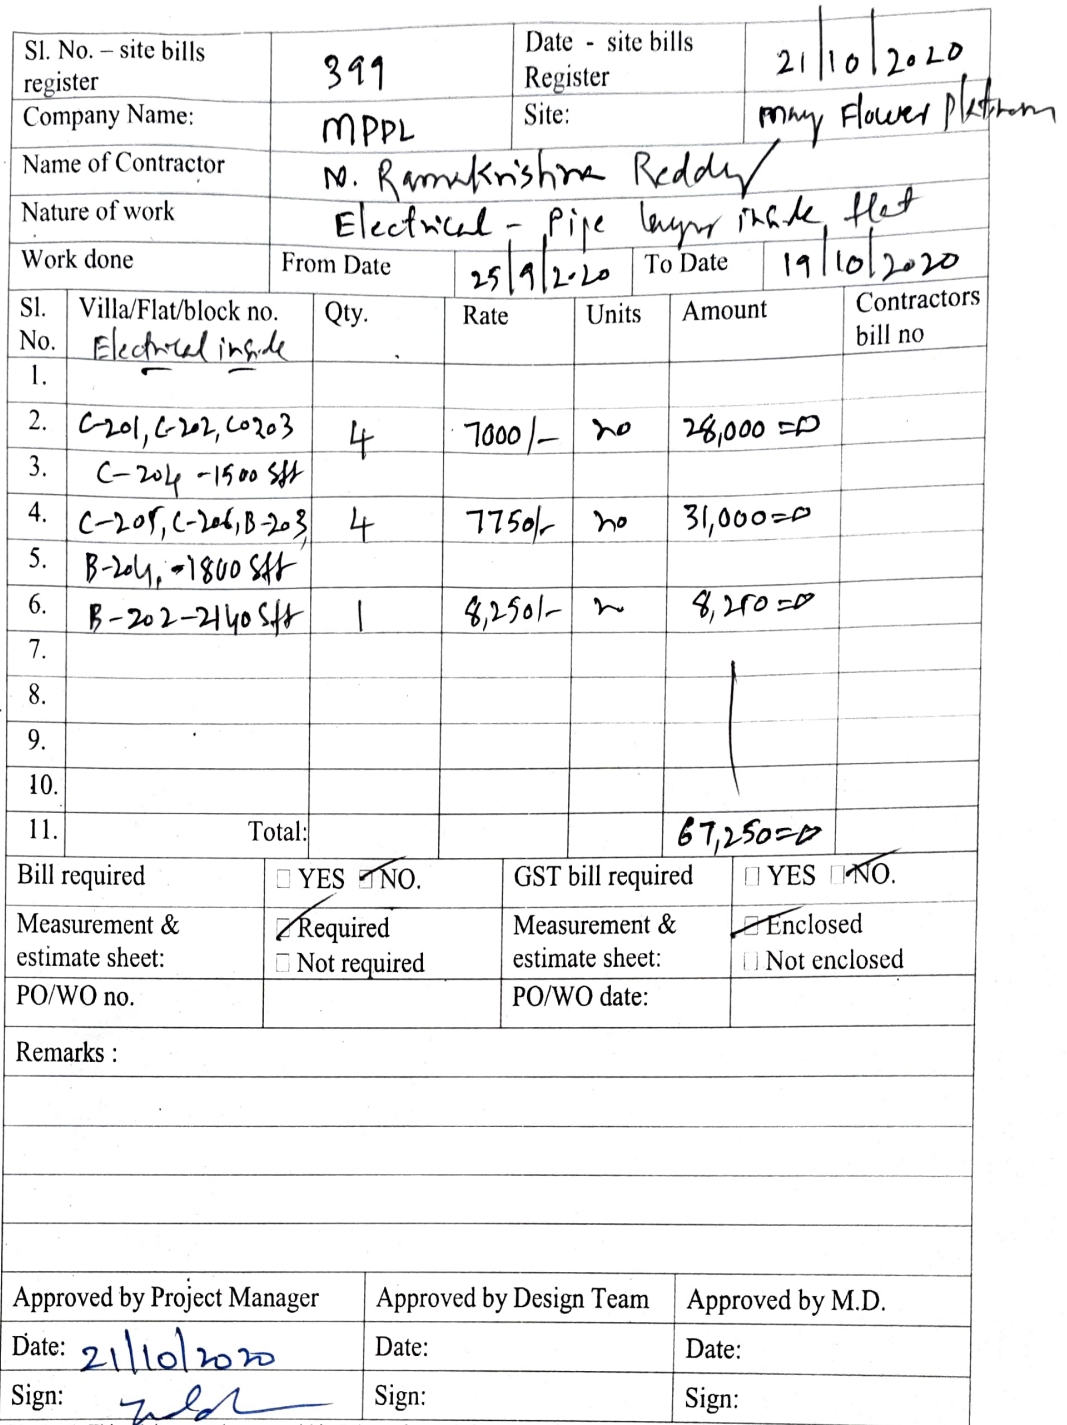 Sl. No. – site bills register 399 Date - site bills Register 21/10/2020
Company Name: MPPL Site: may Flower Platinum
Name of Contractor N. Ramakrishna Reddy
Nature of work Electrical - Pipe laying inside flat
Work done From Date 25/9/2020 To Date 19/10/2020
Sl. No. Villa/Flat/block no. Qty. Rate Units Amount Contractors bill no
Electrical inside
1.
2. C-201, C-202, C0203 4 7000/- no 28,000=00
3. C-204 -1500 sft
4. C-205, C-206, B-203, 4 7750/- no 31,000=00
5. B-204, -1800 sft
6. B-202-2140 sft 1 8,250/- 8,250=00
7.
8.
9.
10.
11. Total: 67,250=00
Bill required YES NO. GST bill required YES NO.
Measurement & estimate sheet: Required Not required Measurement & estimate sheet: Enclosed Not enclosed
PO/WO no. PO/WO date:
Remarks :
Approved by Project Manager Approved by Design Team Approved by M.D.
Date: 21/10/2020 Date: Date:
Sign: Sign: Sign: